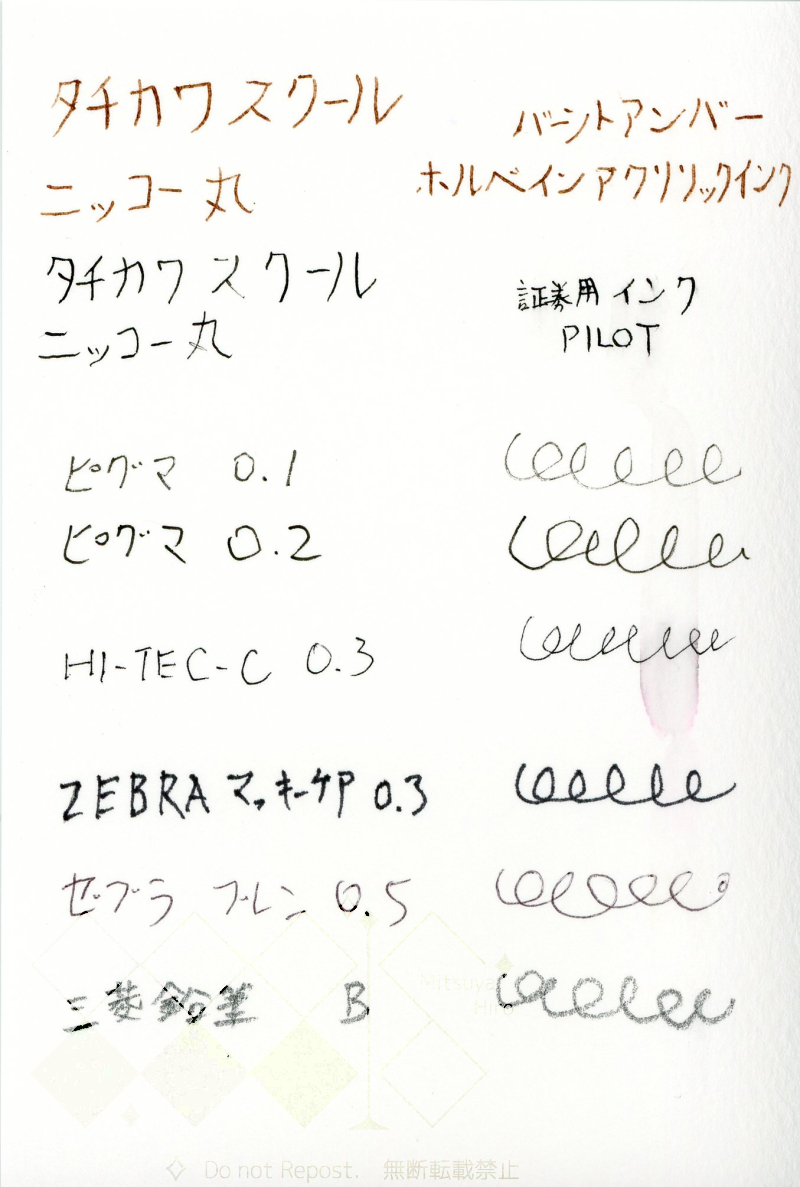 タチカワスクール
バーントアンバー
ニッコー丸
ホルベインアクリリックインク
タチカワスクール
証券用インク
ニッコー丸
PILOT
ピグマ 0.1
ピグマ 0.2
HI-TEC-C 0.3
ZEBRA マッキーケア 0.3
ゼブラ ブレン 0.5
三菱鉛筆 B
Mitsuya
Hiro
Do not Repost. 無断転載禁止